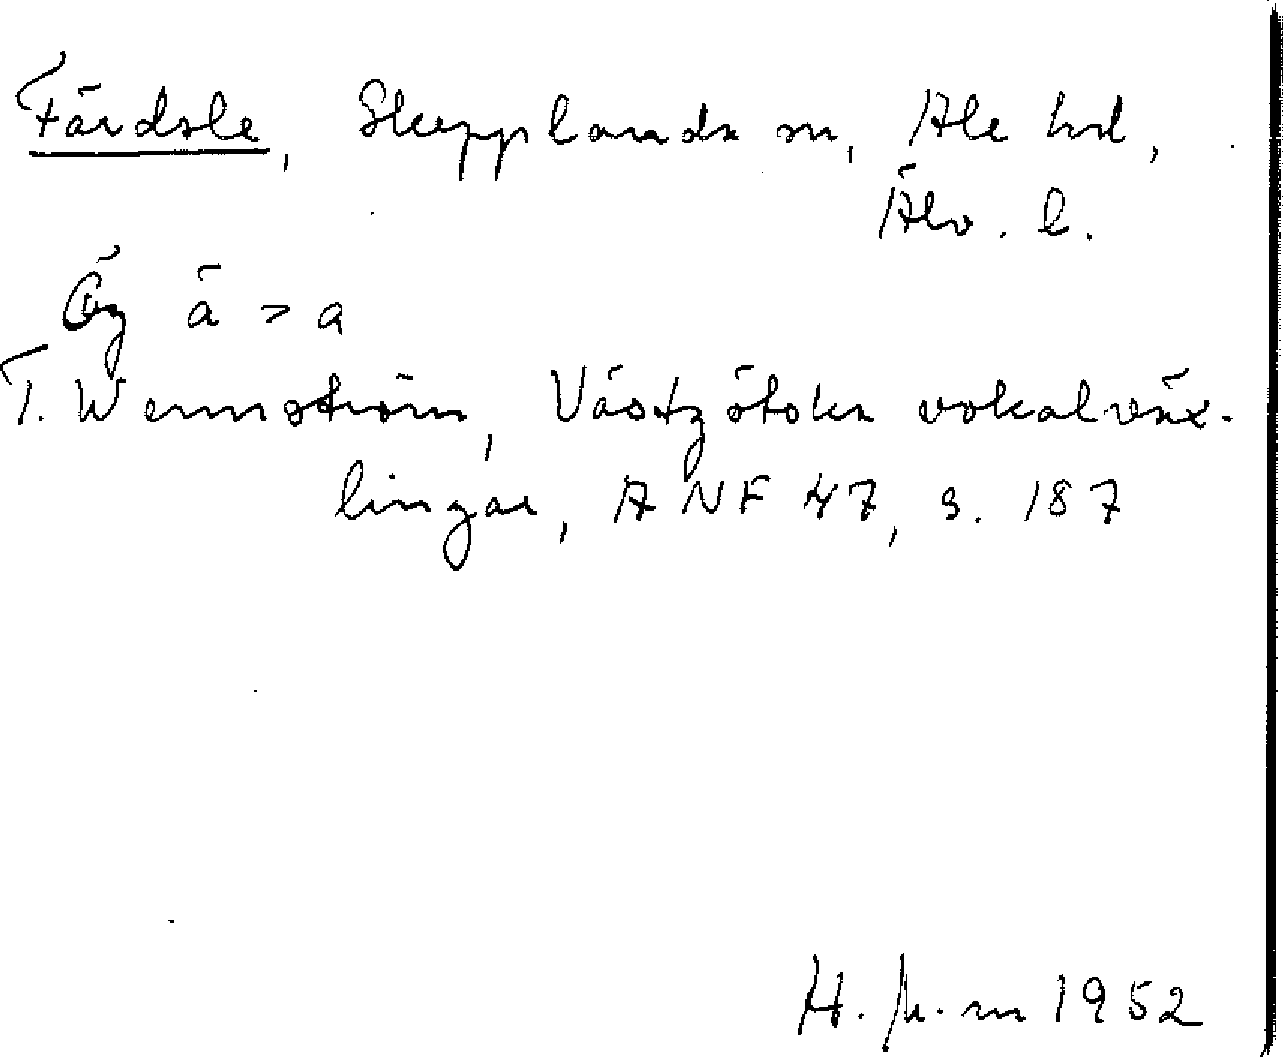 Färdsle, Skepplanda sn, Ale hd,
Älv. l.
Övg ä > a
T. Wennström, Västgötska vokalväx-
lingar, ANF 47, s. 187
H. 1952